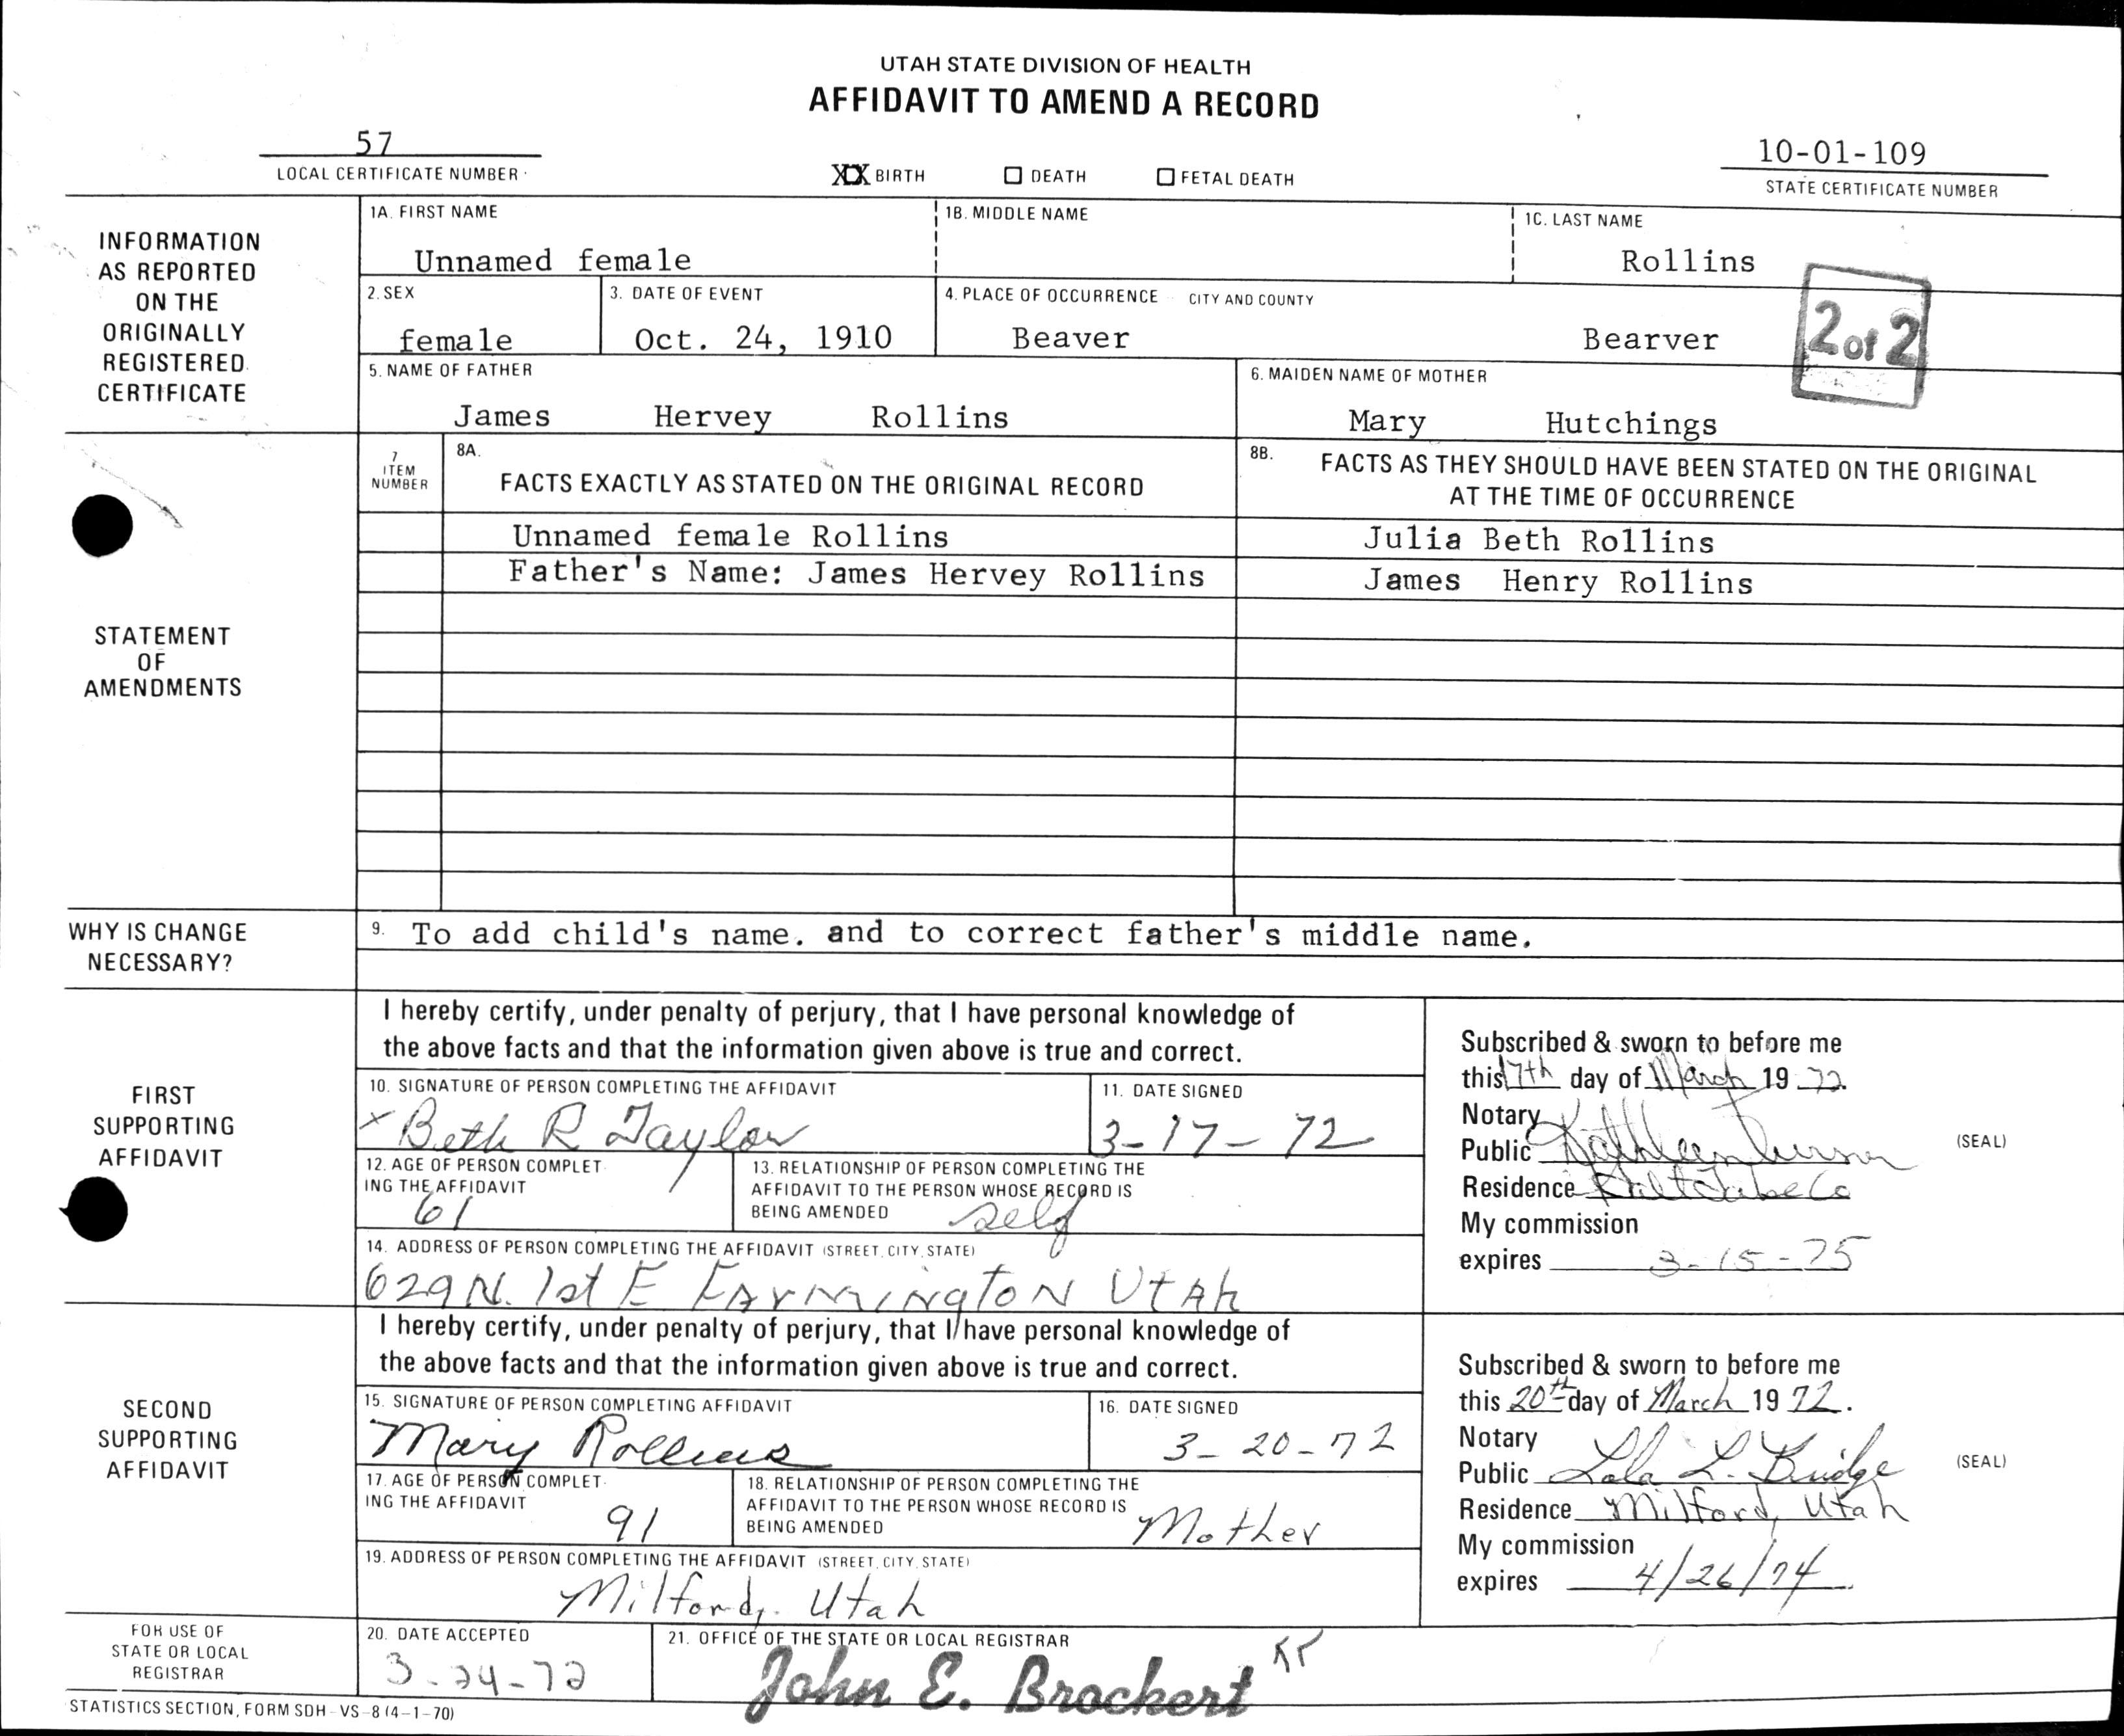 UTAH STATE DIVISION OF HEALTH
AFFIDAVIT TO AMEND A RECORD
57
LOCAL CERTIFICATE NUMBER
XX BIRTH DEATH FETAL DEATH
10-01-109
STATE CERTIFICATE NUMBER
INFORMATION
AS REPORTED
ON THE
ORIGINALLY
REGISTERED
CERTIFICATE
1A. FIRST NAME
Unnamed female
1B. MIDDLE NAME
1C. LAST NAME
Rollins
2. SEX
female
3. DATE OF EVENT
Oct. 24, 1910
4. PLACE OF OCCURRENCE CITY AND COUNTY
Beaver Bearver
2 of 2
5. NAME OF FATHER
James Hervey Rollins
6. MAIDEN NAME OF MOTHER
Mary Hutchings
STATEMENT
OF
AMENDMENTS
7
ITEM
NUMBER
8A.
FACTS EXACTLY AS STATED ON THE ORIGINAL RECORD
8B. FACTS AS THEY SHOULD HAVE BEEN STATED ON THE ORIGINAL
AT THE TIME OF OCCURRENCE
Unnamed female Rollins Julia Beth Rollins
Father's Name: James Hervey Rollins James Henry Rollins
WHY IS CHANGE
NECESSARY?
9. To add child's name. and to correct father's middle name.
FIRST
SUPPORTING
AFFIDAVIT
I hereby certify, under penalty of perjury, that I have personal knowledge of
the above facts and that the information given above is true and correct.
10. SIGNATURE OF PERSON COMPLETING THE AFFIDAVIT
x Beth R Taylor
11. DATE SIGNED
3-17-72
12. AGE OF PERSON COMPLET-
ING THE AFFIDAVIT
61
13. RELATIONSHIP OF PERSON COMPLETING THE
AFFIDAVIT TO THE PERSON WHOSE RECORD IS
BEING AMENDED self
14. ADDRESS OF PERSON COMPLETING THE AFFIDAVIT (STREET, CITY, STATE)
629 N. 1st E Farmington Utah
Subscribed & sworn to before me
this 17th day of March 19 72
Notary
Public Kathleen
Residence Salt Lake Co
My commission
expires 3-15-75
(SEAL)
SECOND
SUPPORTING
AFFIDAVIT
I hereby certify, under penalty of perjury, that I have personal knowledge of
the above facts and that the information given above is true and correct.
15. SIGNATURE OF PERSON COMPLETING AFFIDAVIT
Mary Rollins
16. DATE SIGNED
3-20-72
17. AGE OF PERSON COMPLET-
ING THE AFFIDAVIT
91
18. RELATIONSHIP OF PERSON COMPLETING THE
AFFIDAVIT TO THE PERSON WHOSE RECORD IS
BEING AMENDED Mother
19. ADDRESS OF PERSON COMPLETING THE AFFIDAVIT (STREET, CITY, STATE)
Milford, Utah
Subscribed & sworn to before me
this 20th day of March 19 72.
Notary
Public Lola L. Bridge
Residence Milford, Utah
My commission
expires 4/26/74
(SEAL)
FOR USE OF
STATE OR LOCAL
REGISTRAR
20. DATE ACCEPTED
3-24-72
21. OFFICE OF THE STATE OR LOCAL REGISTRAR
John E. Brockert
STATISTICS SECTION, FORM SDH-VS-8 (4-1-70)